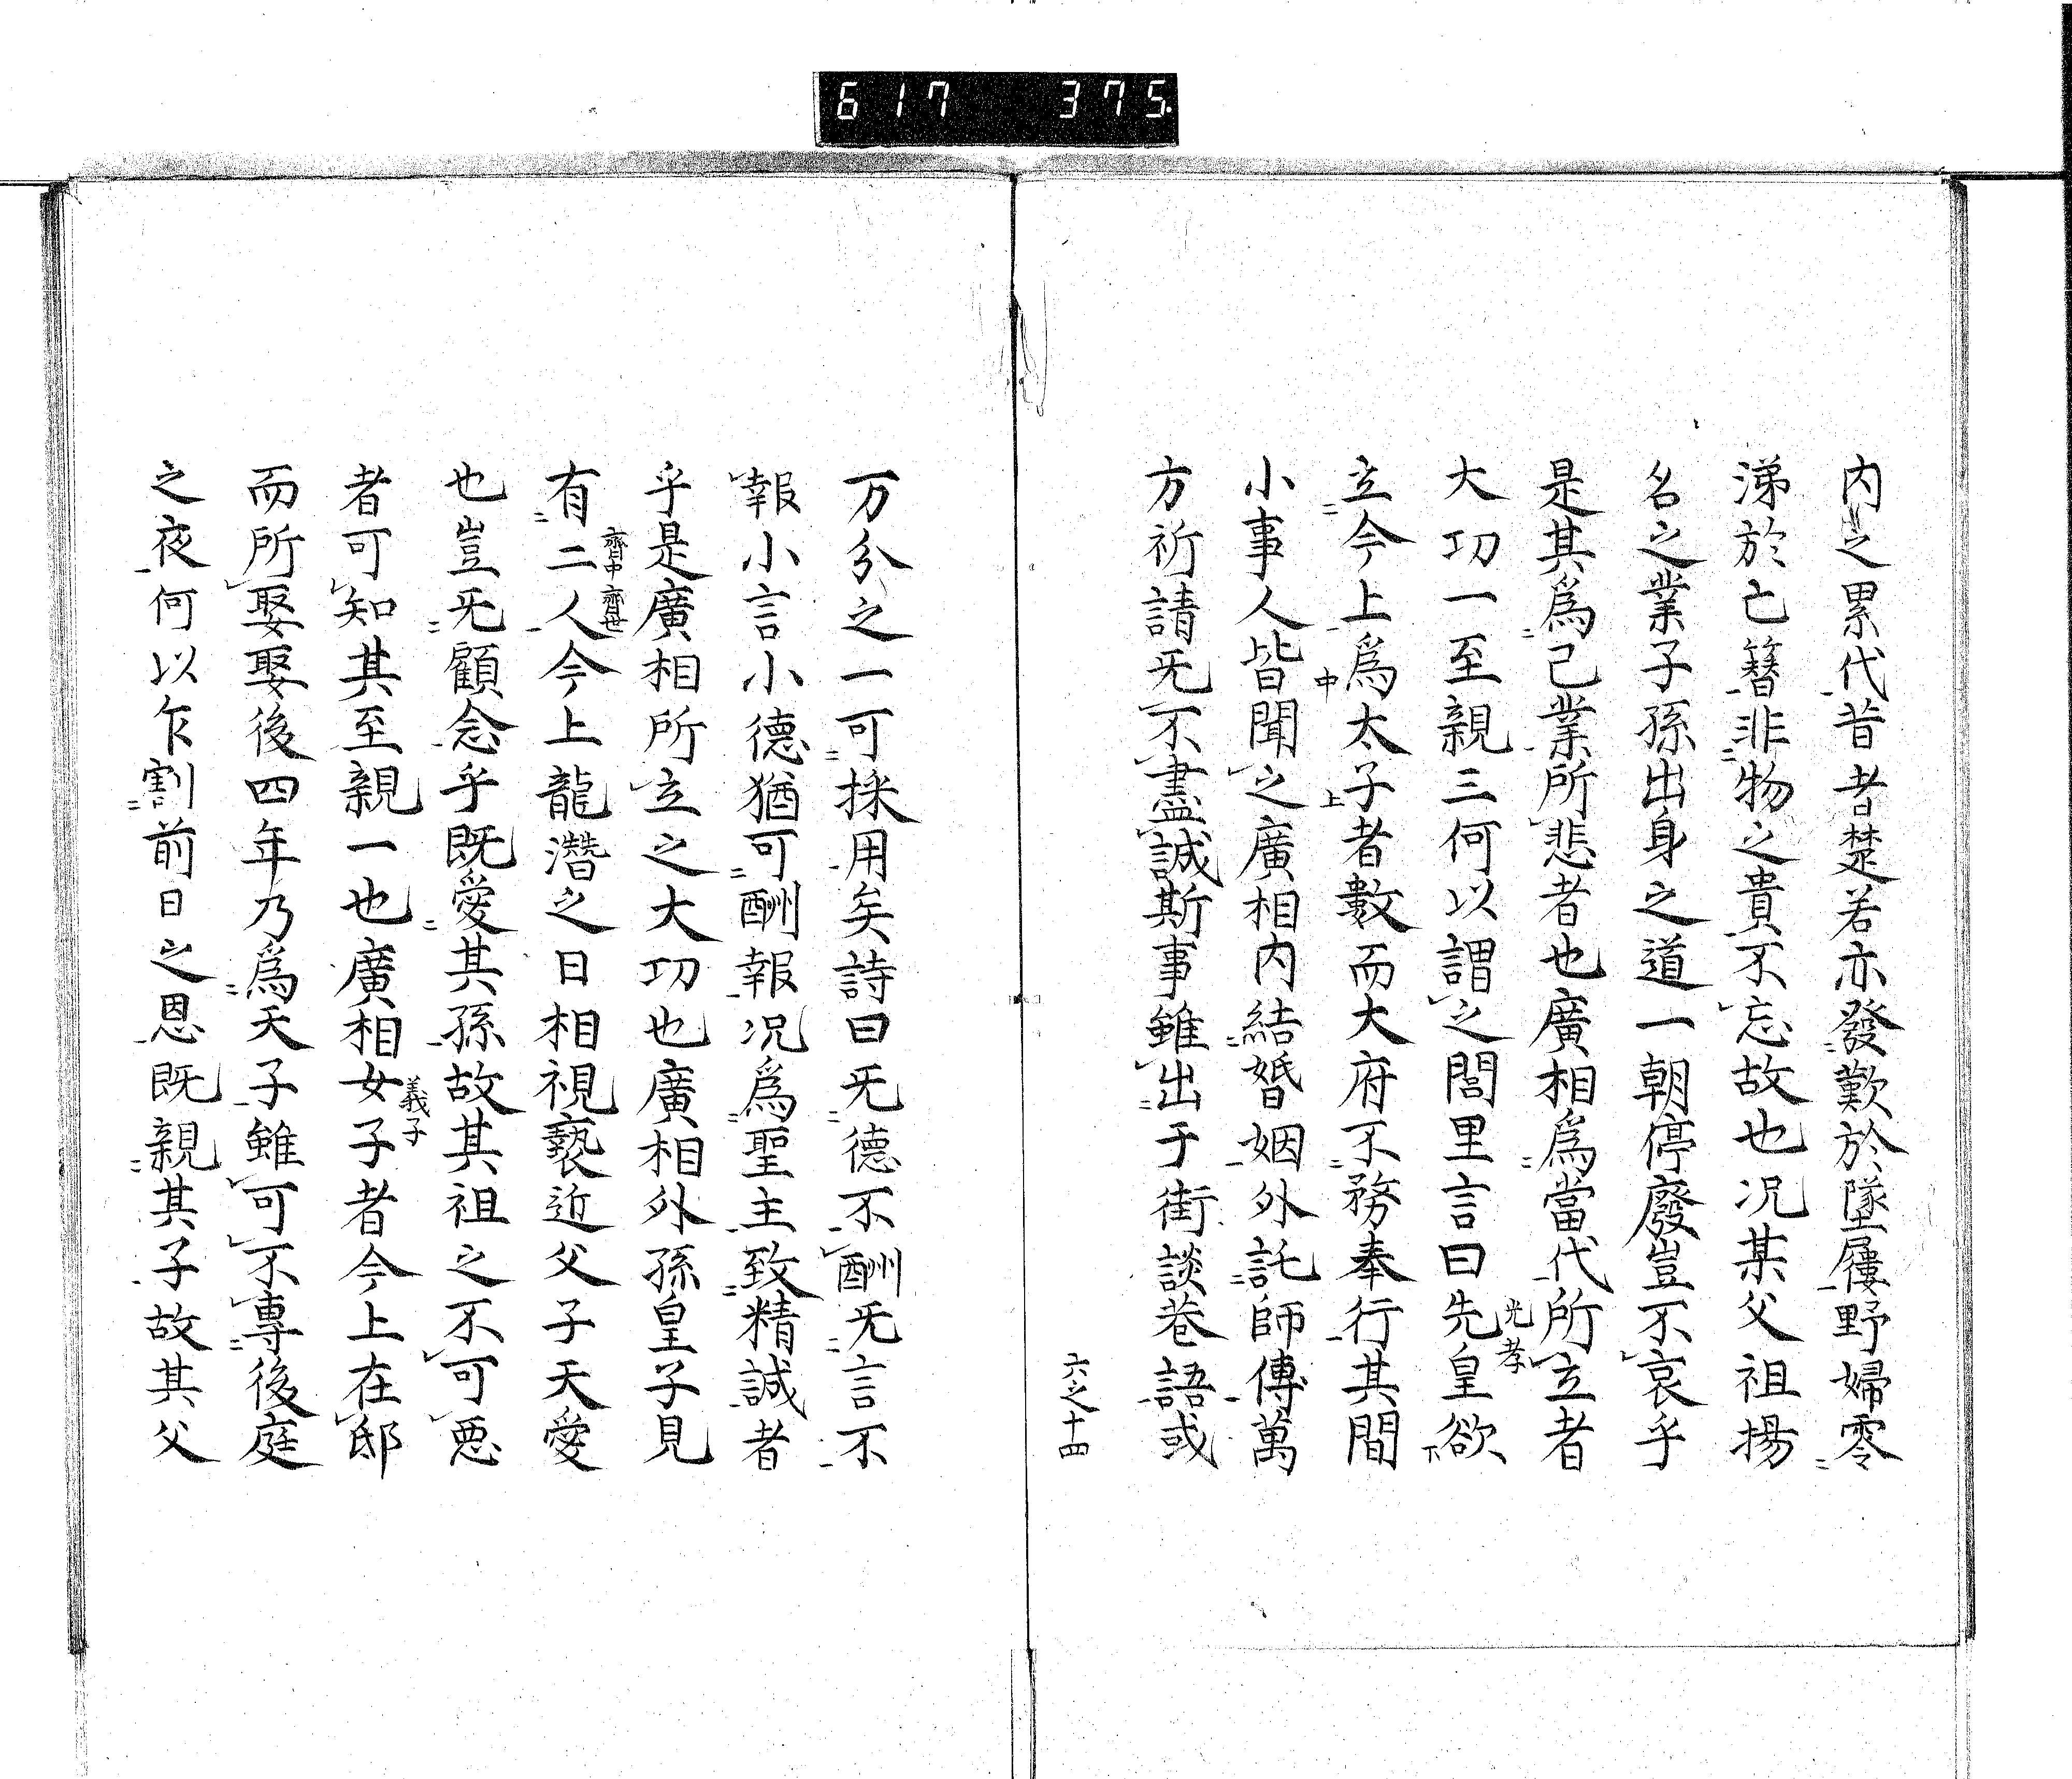 617 375.
内之累代昔者楚若亦發歎於墜屨野婦零
涕於亡簪非物之貴不忘故也况某父祖揚
名之業子孫出身之道一朝停廢豈不哀乎
是其為己業所悲者也廣相為當代所立者
大功一至親三何以謂之閭里言曰先皇欲
光孝
立今上為太子者數而大府不務奉行其間
中 上 下
小事人皆聞之廣相内結婚姻外託師傅萬
方祈請旡不盡誠斯事雖出于街談巷語或
六之十四
万分之一可採用矣詩曰旡德不酬旡言不
報小言小德猶可酬報况為聖主致精誠者
乎是廣相所立之大功也廣相外孫皇子見
有二人今上龍潛之日相視褻近父子天愛
齊中 齊世
也豈旡顧念乎既愛其孫故其祖之不可惡
者可知其至親一也廣相女子者今上在邸
義子
而所娶娶後四年乃為天子雖可不專後庭
之夜何以乍割前日之恩既親其子故其父